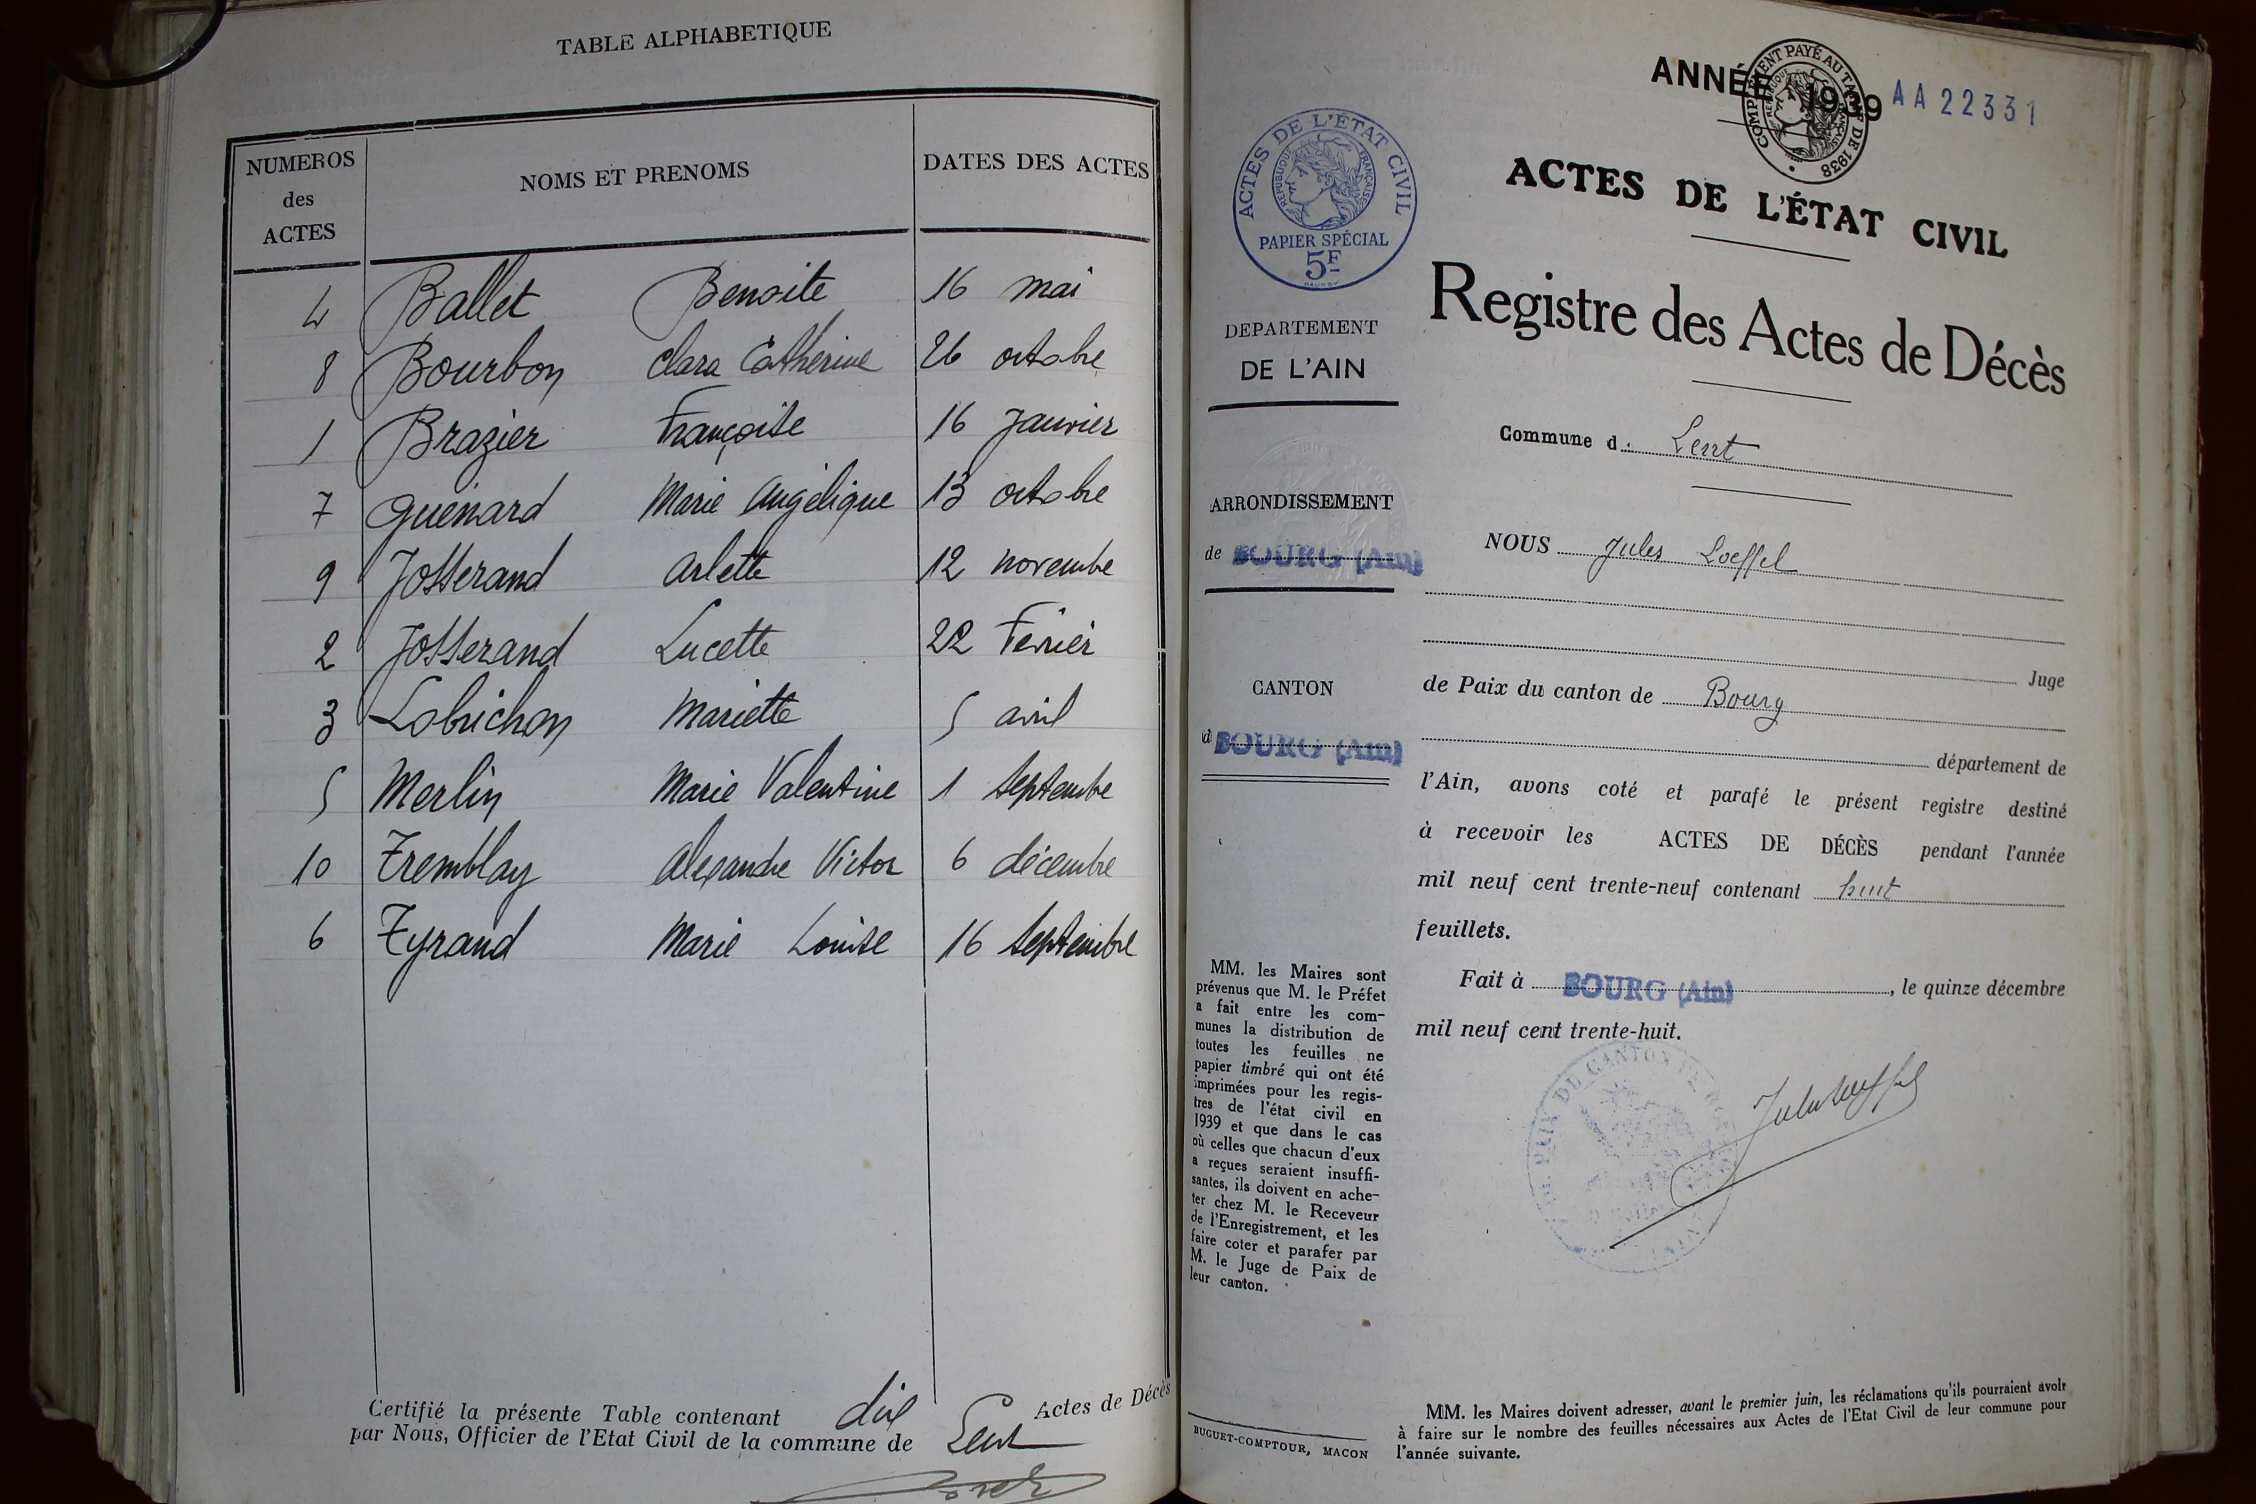 TABLE ALPHABETIQUE
NUMEROS
des
ACTES
NOMS ET PRENOMS
DATES DES ACTES
4 Ballet Benoite 16 mai
8 Bourbon Clara Catherine 26 octobre
1 Brazier Françoise 16 Janvier
7 Guenard Marie Angélique 13 octobre
9 Josserand Arlette 12 novembre
2 Josserand Lucette 22 Février
3 Lobrichon Mariette 5 avril
5 Merlin Marie Valentine 1 Septembre
10 Tremblay Alexandre Victor 6 décembre
6 Tyrand Marie Louise 16 Septembre
Certifié la présente Table contenant dix Actes de Décès
par Nous, Officier de l'Etat Civil de la commune de Lent
ANNÉE 1939
COMPLÉMENT PAYÉ AU TARIF DE 1938
RÉPUBLIQUE FRANÇAISE
AA22331
ACTES DE L'ÉTAT CIVIL
RÉPUBLIQUE FRANÇAISE
PAPIER SPÉCIAL
5F
DEPARTEMENT
DE L'AIN
ARRONDISSEMENT
de BOURG (Ain)
CANTON
d BOURG (Ain)
MM. les Maires sont
prévenus que M. le Préfet
a fait entre les com-
munes la distribution de
toutes les feuilles ne
papier timbré qui ont été
imprimées pour les regis-
tres de l'état civil en
1939 et que dans le cas
où celles que chacun d'eux
a reçues seraient insuffi-
santes, ils doivent en ache-
ter chez M. le Receveur
de l'Enregistrement, et les
faire coter et parafer par
M. le Juge de Paix de
leur canton.
BUGUET-COMPTOUR, MACON
ACTES DE L'ÉTAT CIVIL
Registre des Actes de Décès
Commune d: Lent
NOUS Jules Loeffel
Juge
de Paix du canton de Bourg
département de
l'Ain, avons coté et parafé le présent registre destiné
à recevoir les ACTES DE DÉCÈS pendant l'année
mil neuf cent trente-neuf contenant huit
feuillets.
Fait à BOURG (Ain), le quinze décembre
mil neuf cent trente-huit.
Jules Loeffel
MM. les Maires doivent adresser, avant le premier juin, les réclamations qu'ils pourraient avoir
à faire sur le nombre des feuilles nécessaires aux Actes de l'Etat Civil de leur commune pour
l'année suivante.